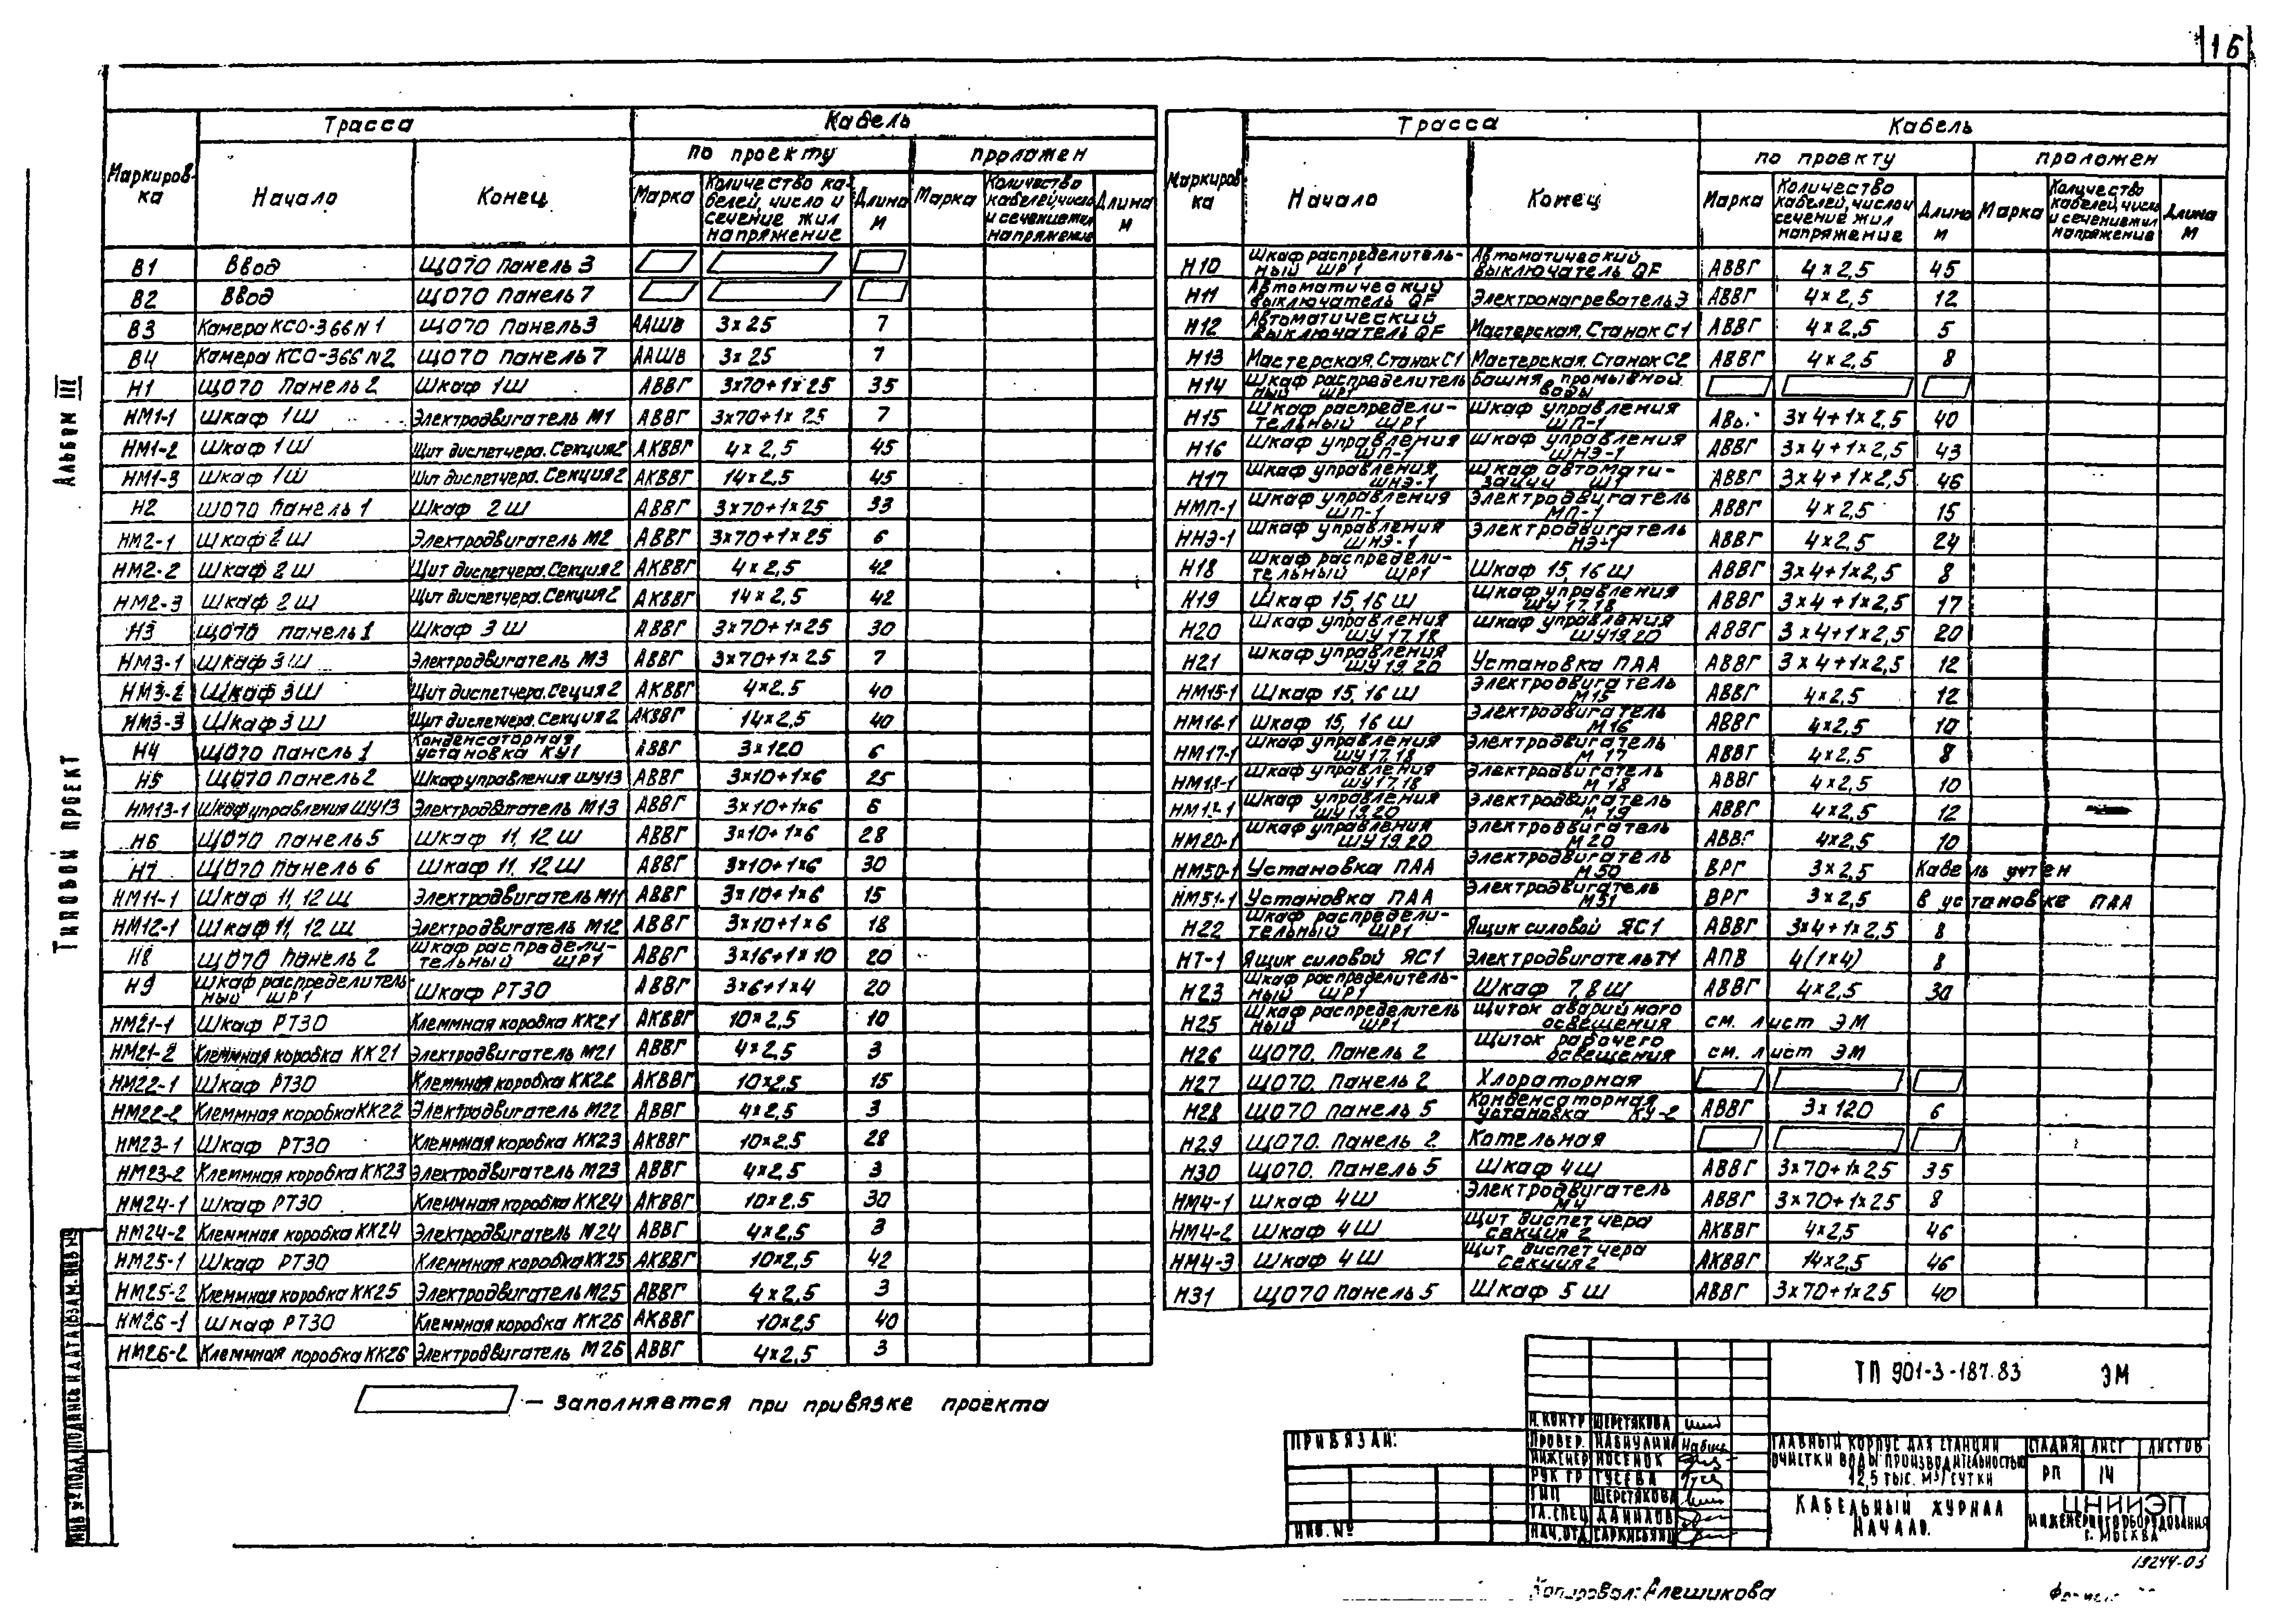 16
Альбом III
Типовой проект
Маркировка | Трасса | Кабель
по проекту | проложен
Начало | Конец | Марка | Количество кабелей, число и сечение жил напряжение | Длина м | Марка | Количество кабелей, число и сечение жил напряжение | Длина м
В1 Ввод ЩО70 Панель 3
В2 Ввод ЩО70 Панель 7
В3 Камера КСО-366 N1 ЩО70 Панель 3 ААШВ 3×25 7
В4 Камера КСО-366 N2 ЩО70 Панель 7 ААШВ 3×25 7
Н1 ЩО70 Панель 2 Шкаф 1Ш АВВГ 3×70+1×25 35
НМ1-1 Шкаф 1Ш Электродвигатель М1 АВВГ 3×70+1×25 7
НМ1-2 Шкаф 1Ш Щит диспетчера. Секция 2 АКВВГ 4×2,5 45
НМ1-3 Шкаф 1Ш Щит диспетчера. Секция 2 АКВВГ 14×2,5 45
Н2 ЩО70 Панель 1 Шкаф 2Ш АВВГ 3×70+1×25 33
НМ2-1 Шкаф 2Ш Электродвигатель М2 АВВГ 3×70+1×25 6
НМ2-2 Шкаф 2Ш Щит диспетчера. Секция 2 АКВВГ 4×2,5 42
НМ2-3 Шкаф 2Ш Щит диспетчера. Секция 2 АКВВГ 14×2,5 42
Н3 ЩО70 панель 1 Шкаф 3Ш АВВГ 3×70+1×25 30
НМ3-1 Шкаф 3Ш Электродвигатель М3 АВВГ 3×70+1×25 7
НМ3-2 Шкаф 3Ш Щит диспетчера. Сеция 2 АКВВГ 4×2.5 40
НМ3-3 Шкаф 3Ш Щит диспетчера. Секция 2 АКВВГ 14×2,5 40
Н4 ЩО70 Панель 1 Конденсаторная установка КУ1 АВВГ 3×120 6
Н5 ЩО70 Панель 2 Шкаф управления ШУ13 АВВГ 3×10+1×6 25
НМ13-1 Шкаф управления ШУ13 Электродвигатель М13 АВВГ 3×10+1×6 6
Н6 ЩО70 Панель 5 Шкаф 11, 12 Ш АВВГ 3×10+1×6 28
Н7 ЩО70 Панель 6 Шкаф 11, 12 Ш АВВГ 3×10+1×6 30
НМ11-1 Шкаф 11, 12 Ш Электродвигатель М11 АВВГ 3×10+1×6 15
НМ12-1 Шкаф 11, 12 Ш Электродвигатель М12 АВВГ 3×10+1×6 18
Н8 ЩО70 Панель 2 Шкаф распределительный ШР1 АВВГ 3×16+1×10 20
Н9 Шкаф распределительный ШР1 Шкаф РТ30 АВВГ 3×6+1×4 20
НМ21-1 Шкаф РТ30 Клеммная коробка КК21 АКВВГ 10×2,5 10
НМ21-2 Клеммная коробка КК21 Электродвигатель М21 АВВГ 4×2,5 3
НМ22-1 Шкаф РТ30 Клеммная коробка КК22 АКВВГ 10×2,5 15
НМ22-2 Клеммная коробка КК22 Электродвигатель М22 АВВГ 4×2,5 3
НМ23-1 Шкаф РТ30 Клеммная коробка КК23 АКВВГ 10×2,5 28
НМ23-2 Клеммная коробка КК23 Электродвигатель М23 АВВГ 4×2,5 3
НМ24-1 Шкаф РТ30 Клеммная коробка КК24 АКВВГ 10×2,5 30
НМ24-2 Клеммная коробка КК24 Электродвигатель М24 АВВГ 4×2,5 3
НМ25-1 Шкаф РТ30 Клеммная коробка КК25 АКВВГ 10×2,5 42
НМ25-2 Клеммная коробка КК25 Электродвигатель М25 АВВГ 4×2,5 3
НМ26-1 Шкаф РТ30 Клеммная коробка КК26 АКВВГ 10×2,5 40
НМ26-2 Клеммная коробка КК26 Электродвигатель М26 АВВГ 4×2,5 3
— Заполняется при привязке проекта
Маркировка | Трасса | Кабель
по проекту | проложен
Начало | Конец | Марка | Количество кабелей, число и сечение жил напряжение | Длина м | Марка | Количество кабелей, число и сечение жил напряжение | Длина м
Н10 Шкаф распределительный ШР1 Автоматический выключатель QF АВВГ 4×2,5 45
Н11 Автоматический выключатель QF Электронагреватель Э АВВГ 4×2,5 12
Н12 Автоматический выключатель QF Мастерская. Станок С1 АВВГ 4×2,5 5
Н13 Мастерская. Станок С1 Мастерская. Станок С2 АВВГ 4×2,5 8
Н14 Шкаф распределительный ШР1 Башня промывной воды
Н15 Шкаф распределительный ШР1 Шкаф управления ШП-1 3×4+1×2,5 40
Н16 Шкаф управления ШП-1 Шкаф управления ШНЭ-1 АВВГ 3×4+1×2,5 43
Н17 Шкаф управления ШНЭ-1 Шкаф автоматизации Ш1 АВВГ 3×4+1×2,5 46
НМП-1 Шкаф управления ШП-1 Электродвигатель МП-1 АВВГ 4×2,5 15
ННЭ-1 Шкаф управления ШНЭ-1 Электродвигатель НЭ-1 АВВГ 4×2,5 24
Н18 Шкаф распределительный ШР1 Шкаф 15, 16 Ш АВВГ 3×4+1×2,5 8
Н19 Шкаф 15, 16 Ш Шкаф управления ШУ17,18 АВВГ 3×4+1×2,5 17
Н20 Шкаф управления ШУ17,18 Шкаф управления ШУ19,20 АВВГ 3×4+1×2,5 20
Н21 Шкаф управления ШУ19,20 Установка ПАА АВВГ 3×4+1×2,5 12
НМ15-1 Шкаф 15, 16 Ш Электродвигатель М15 АВВГ 4×2,5 12
НМ16-1 Шкаф 15, 16 Ш Электродвигатель М16 АВВГ 4×2,5 10
НМ17-1 Шкаф управления ШУ17,18 Электродвигатель М17 АВВГ 4×2,5 8
НМ18-1 Шкаф управления ШУ17,18 Электродвигатель М18 АВВГ 4×2,5 10
НМ19-1 Шкаф управления ШУ19,20 Электродвигатель М19 АВВГ 4×2,5 12
НМ20-1 Шкаф управления ШУ19,20 Электродвигатель М20 АВВГ 4×2,5 10
НМ50-1 Установка ПАА Электродвигатель М50 ВРГ 3×2,5 Кабель учтен
НМ51-1 Установка ПАА Электродвигатель М51 ВРГ 3×2,5 в установке ПАА
Н22 Шкаф распределительный ШР1 Ящик силовой ЯС1 АВВГ 3×4+1×2,5 8
НТ-1 Ящик силовой ЯС1 Электродвигатель Т1 АПВ 4(1×4) 8
Н23 Шкаф распределительный ШР1 Шкаф 7,8 Ш АВВГ 4×2,5 30
Н25 Шкаф распределительный ШР1 Щиток аварийного освещения см. лист ЭМ
Н26 ЩО70. Панель 2 Щиток рабочего освещения см. лист ЭМ
Н27 ЩО70. Панель 2 Хлораторная
Н28 ЩО70 панель 5 Конденсаторная установка КУ-2 АВВГ 3×120 6
Н29 ЩО70. Панель 2 Котельная
Н30 ЩО70. Панель 5 Шкаф 4Ш АВВГ 3×70+1×25 35
НМ4-1 Шкаф 4Ш Электродвигатель М4 АВВГ 3×70+1×25 8
НМ4-2 Шкаф 4Ш Щит диспетчера секция 2 АКВВГ 4×2,5 46
НМ4-3 Шкаф 4Ш Щит диспетчера секция 2 АКВВГ 14×2,5 46
Н31 ЩО70 Панель 5 Шкаф 5Ш АВВГ 3×70+1×25 40
ТП 901-3-187.83 ЭМ
Привязан:
Инв. №
Н.контр Шерстякова
Провер.
Инженер Носенок
Рук гр Гусева
ГИП Шерстякова
Гл.спец Данилов
Нач.отд
Главный корпус для станции очистки воды производительностью 12,5 тыс. м³/сутки
Стадия Лист Листов
РП 14
Кабельный журнал
Начало.
ЦНИИЭП
инженерного оборудования
г. Москва
19244-03
Копировал: Алешикова
Инв № подл Подпись и дата Взам. инв №